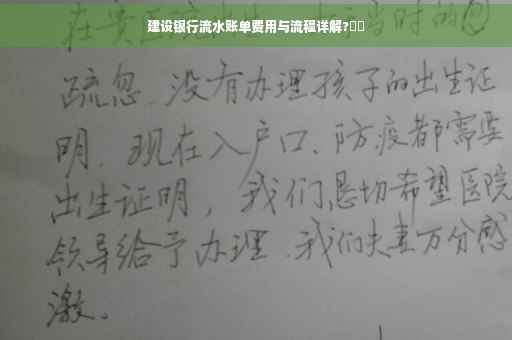 建设银行流水账单费用与流程详解?
当时的
疏忽.没有办理孩子的出生证
明.现在入户口、防疫都需要
出生证明，我们恳切希望医院
领导给予办理.我们夫妻万分感
激。